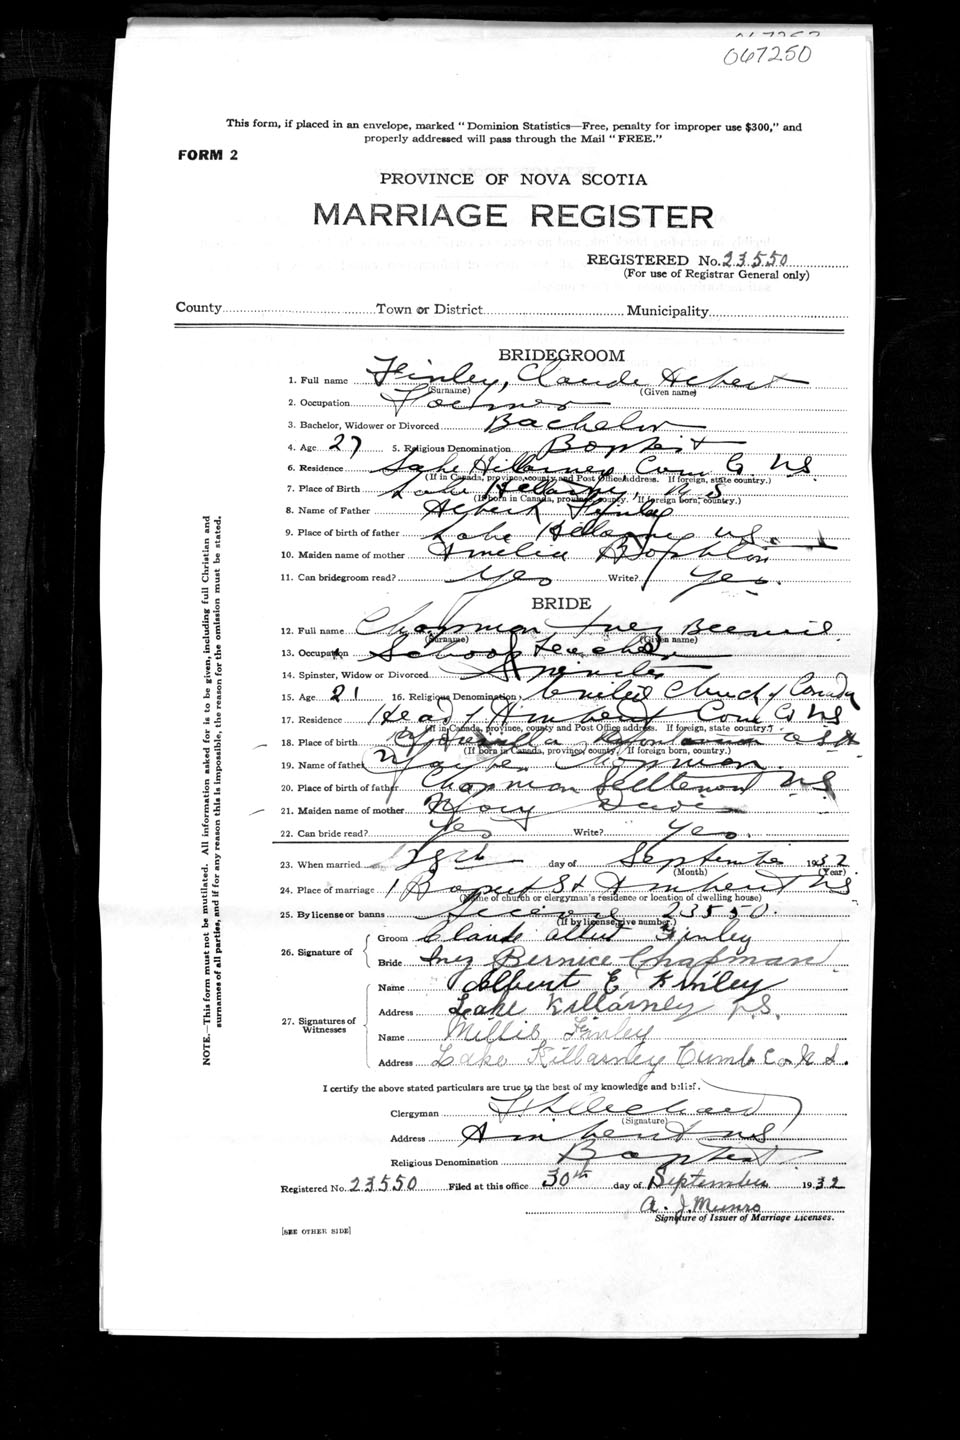 067250
This form, if placed in an envelope, marked "Dominion Statistics—Free, penalty for improper use $300," and
properly addressed will pass through the Mail "FREE."
FORM 2
PROVINCE OF NOVA SCOTIA
MARRIAGE REGISTER
REGISTERED No. 23550
(For use of Registrar General only)
County Town or District Municipality
BRIDEGROOM
1. Full name Finley, Claude Albert
(Surname) (Given name)
2. Occupation Farmer
3. Bachelor, Widower or Divorced Bachelor
4. Age 27 5. Religious Denomination Baptist
6. Residence Lake Killarney Cum Co. NS
(If in Canada, province, county and Post Office address. If foreign, state country.)
7. Place of Birth Lake Killarney NS
(If born in Canada, province, county. If foreign born, country.)
8. Name of Father Albert Finley
9. Place of birth of father Lake Killarney NS
10. Maiden name of mother Amelia
11. Can bridegroom read? Yes Write? Yes.
BRIDE
12. Full name Chapman Inez Bernice
(Surname) (Given name)
13. Occupation School Teacher
14. Spinster, Widow or Divorced Spinster
15. Age 21 16. Religious Denomination United Church of Canada
17. Residence Head of Amherst Cum Co NS
(If in Canada, province, county and Post Office address. If foreign, state country.)
18. Place of birth
(If born in Canada, province, county. If foreign born, country.)
19. Name of father Chapman
20. Place of birth of father Chapman Settlement NS
21. Maiden name of mother Mary
22. Can bride read? Yes Write? Yes.
23. When married 28th day of September 1932
(Month) (Year)
24. Place of marriage 1 Baptist St Amherst NS
(Name of church or clergyman's residence or location of dwelling house)
25. By license or banns License 23550.
(If by license, give number.)
26. Signature of Groom Claude Albert Finley
Bride Inez Bernice Chapman
27. Signatures of Witnesses Name Albert E Finley
Address Lake Killarney N.S.
Name Millis Finley
Address Lake Killarney Cumb. Co. N.S.
I certify the above stated particulars are true to the best of my knowledge and belief.
Clergyman
(Signature)
Address Amherst NS
Religious Denomination Baptist
Registered No. 23550 Filed at this office 30th day of September 1932
A. J. Munro
Signature of Issuer of Marriage Licenses.
[SEE OTHER SIDE]
NOTE.—This form must not be mutilated. All information asked for is to be given, including full Christian and
surnames of all parties, and if for any reason this is impossible, the reason for the omission must be stated.